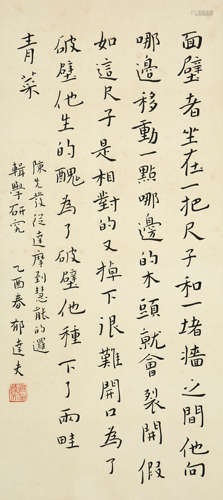 面壁者坐在一把尺子和一堵墙之间他向
哪边移动一点哪边的木头就会裂開假
如這尺子是相對的又掉下很難開口為了
破壁他生的醜為了破壁他種下了兩畦
青菜
陳先發從達摩到慧能的邏
輯學研究
乙酉春 郁達夫